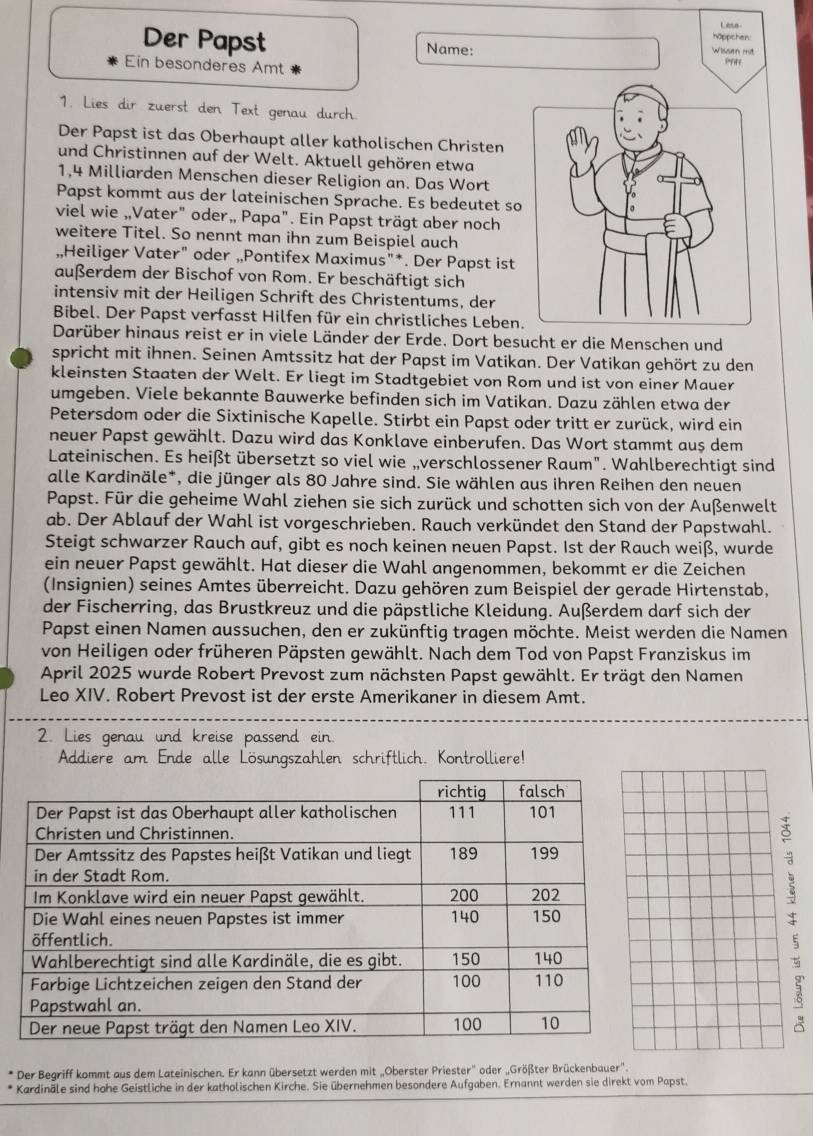 Der Papst
* Ein besonderes Amt *
Name:
Lese-
häppchen:
Wissen mit
Pfiff
1. Lies dir zuerst den Text genau durch.
Der Papst ist das Oberhaupt aller katholischen Christen
und Christinnen auf der Welt. Aktuell gehören etwa
1,4 Milliarden Menschen dieser Religion an. Das Wort
Papst kommt aus der lateinischen Sprache. Es bedeutet so
viel wie „Vater" oder„ Papa". Ein Papst trägt aber noch
weitere Titel. So nennt man ihn zum Beispiel auch
„Heiliger Vater" oder „Pontifex Maximus"*. Der Papst ist
außerdem der Bischof von Rom. Er beschäftigt sich
intensiv mit der Heiligen Schrift des Christentums, der
Bibel. Der Papst verfasst Hilfen für ein christliches Leben.
Darüber hinaus reist er in viele Länder der Erde. Dort besucht er die Menschen und
spricht mit ihnen. Seinen Amtssitz hat der Papst im Vatikan. Der Vatikan gehört zu den
kleinsten Staaten der Welt. Er liegt im Stadtgebiet von Rom und ist von einer Mauer
umgeben. Viele bekannte Bauwerke befinden sich im Vatikan. Dazu zählen etwa der
Petersdom oder die Sixtinische Kapelle. Stirbt ein Papst oder tritt er zurück, wird ein
neuer Papst gewählt. Dazu wird das Konklave einberufen. Das Wort stammt aus dem
Lateinischen. Es heißt übersetzt so viel wie „verschlossener Raum". Wahlberechtigt sind
alle Kardinäle*, die jünger als 80 Jahre sind. Sie wählen aus ihren Reihen den neuen
Papst. Für die geheime Wahl ziehen sie sich zurück und schotten sich von der Außenwelt
ab. Der Ablauf der Wahl ist vorgeschrieben. Rauch verkündet den Stand der Papstwahl.
Steigt schwarzer Rauch auf, gibt es noch keinen neuen Papst. Ist der Rauch weiß, wurde
ein neuer Papst gewählt. Hat dieser die Wahl angenommen, bekommt er die Zeichen
(Insignien) seines Amtes überreicht. Dazu gehören zum Beispiel der gerade Hirtenstab,
der Fischerring, das Brustkreuz und die päpstliche Kleidung. Außerdem darf sich der
Papst einen Namen aussuchen, den er zukünftig tragen möchte. Meist werden die Namen
von Heiligen oder früheren Päpsten gewählt. Nach dem Tod von Papst Franziskus im
April 2025 wurde Robert Prevost zum nächsten Papst gewählt. Er trägt den Namen
Leo XIV. Robert Prevost ist der erste Amerikaner in diesem Amt.
2. Lies genau und kreise passend ein.
Addiere am Ende alle Lösungszahlen schriftlich. Kontrolliere!
richtig falsch
Der Papst ist das Oberhaupt aller katholischen 111 101
Christen und Christinnen.
Der Amtssitz des Papstes heißt Vatikan und liegt 189 199
in der Stadt Rom.
Im Konklave wird ein neuer Papst gewählt. 200 202
Die Wahl eines neuen Papstes ist immer 140 150
öffentlich.
Wahlberechtigt sind alle Kardinäle, die es gibt. 150 140
Farbige Lichtzeichen zeigen den Stand der 100 110
Papstwahl an.
Der neue Papst trägt den Namen Leo XIV. 100 10
Die Lösung ist um 44 kleiner als 1044.
* Der Begriff kommt aus dem Lateinischen. Er kann übersetzt werden mit „Oberster Priester" oder „Größter Brückenbauer".
* Kardinäle sind hohe Geistliche in der katholischen Kirche. Sie übernehmen besondere Aufgaben. Ernannt werden sie direkt vom Papst.